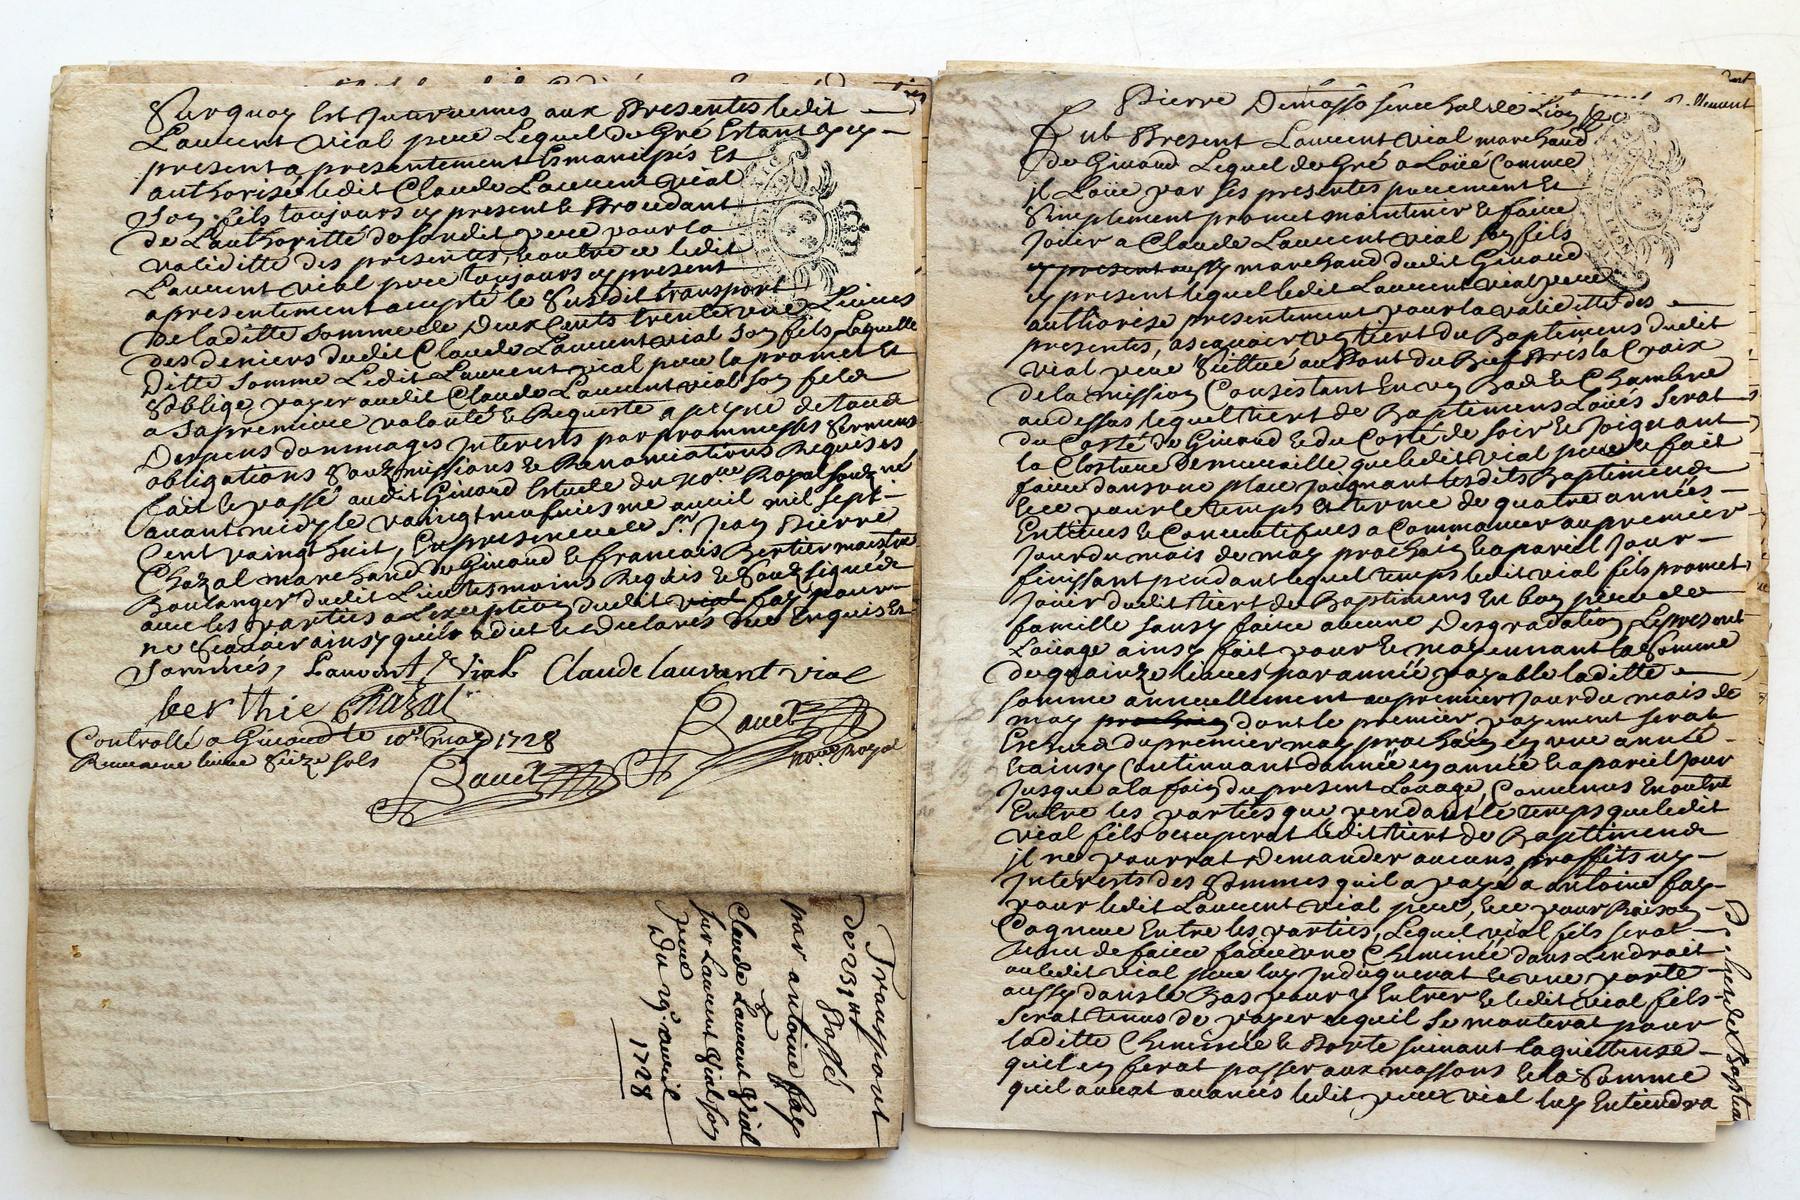 Surquoy Est Intervenus aux Presentes ledit
Laurent vial pere Lequel de Gré Estant icy
present a presentement Esmancipés Et
authorise ledit Claude Laurent vial
son fils toujours icy present & Procedant
de L'authoritté de sondit pere pour la
validitté des presentes, & outre ce ledit
Laurent vial pere toujours icy present
a presentement accepté le Susdit transport
De laditte somme de Deux Cents trente une Livres
des deniers dudit Claude Laurent vial son fils, Laquelle
ditte somme Ledit Laurent vial pere la promet Et
S'oblige payer audit Claude Laurent vial son fils
a sa premiere volonté & Requeste a peyne de tous
Despens dommages Interests par promesses sermens
obligations Soubzmissions & Renonciations Requises
fait & passé audit Giraud Estude du No.re Royal soubz.né
avant midy le vaingt neufviesme avril mil sept
Cent vaingt huit, En presence de Sr. Jean Pierre
Chazal marchand de Giraud & francois Bertier maistre
Boulanger dudit Lieu tesmoins Requis & Soubzsignés
avec les parties a L'exception dudit fay pour
ne scavoir ainsy quil a dit & Declarés Enquis Et
Sommés, Laurent Vial Claude laurant vial
berthie Chazal
Bauet
Controllé a Giraud le 10e. may 1728
no.re Royal
Receu une livre seize sols
Bauet
Transport
De 231 ₶
Passé
par antoine fay
a
Claude Laurent Vial
sur Laurent Vial son
pere
Du 29e. avril
1728
Pierre Demasso senechal de Lion &c
fut Present Laurent vial marchand
de Giraud Lequel de Gré a Loüé Comme
il Loüe par ses presentes purement Et
Simplement promet maintenir & faire
Joüir a Claude Laurent vial son fils
icy present aussy marchand dudit Giraud
icy present lequel ledit Laurent vial pere
authorise presentement pour la validitté des
presentes, ascavoir un tiert du Baptimens dudit
vial pere Scittué au Pont du Bief Prés la Croix
de la mission Consistant En un Bas & Chambre
au dessus lequel tiert de Baptimens Loüés serat
du Costé de Giraud & du Costé de soir & Joignant
la Closture De muraille que ledit vial pere a fait
faire dans une place Joignant lesdits Baptimens
& ce pour le temps & terme de quatre années
Entieres & Consecutifves a Commancer au premier
Jour du mois de may prochain & a pareil Jour
finissant pendant lequel temps ledit vial fils promet
Joüir dudit tiert de Baptimens En bon pere de
famille sans y faire aucune Desgradation Le present
Loüage ainsy fait pour & moyennant la Somme
de quainze livres par année payable laditte
somme annuellement au premier Jour du mois de
may dont le premier payement serat
Escheu du premier may prochain en une année
& ainsy Continuant d'année en année & a pareil Jour
Jusque a la fain du present Loüage, Convenus En outre
Entre les parties que pendant le temps que ledit
vial fils occuperat ledit tiert de Baptimens
il ne pourrat Demander aucuns proffits ny
Interests des Sommes quil a payé a antoine fay
pour ledit Laurent vial pere, & ce pour Raison
Cogneue Entre les parties, Lequel vial fils serat
tenu de faire faire une Cheminée dans L'endrait
ou ledit vial pere luy Indiquerat & une porte
aussy dans le Bas pour y Entrer & ledit vial fils
serat tenus de payer ce quil Se monterat pour
laditte Cheminée & Porte suivant la quittance
quil en ferat passer aux massons & la Somme
quil aurat avancés ledit vial luy Entiendra